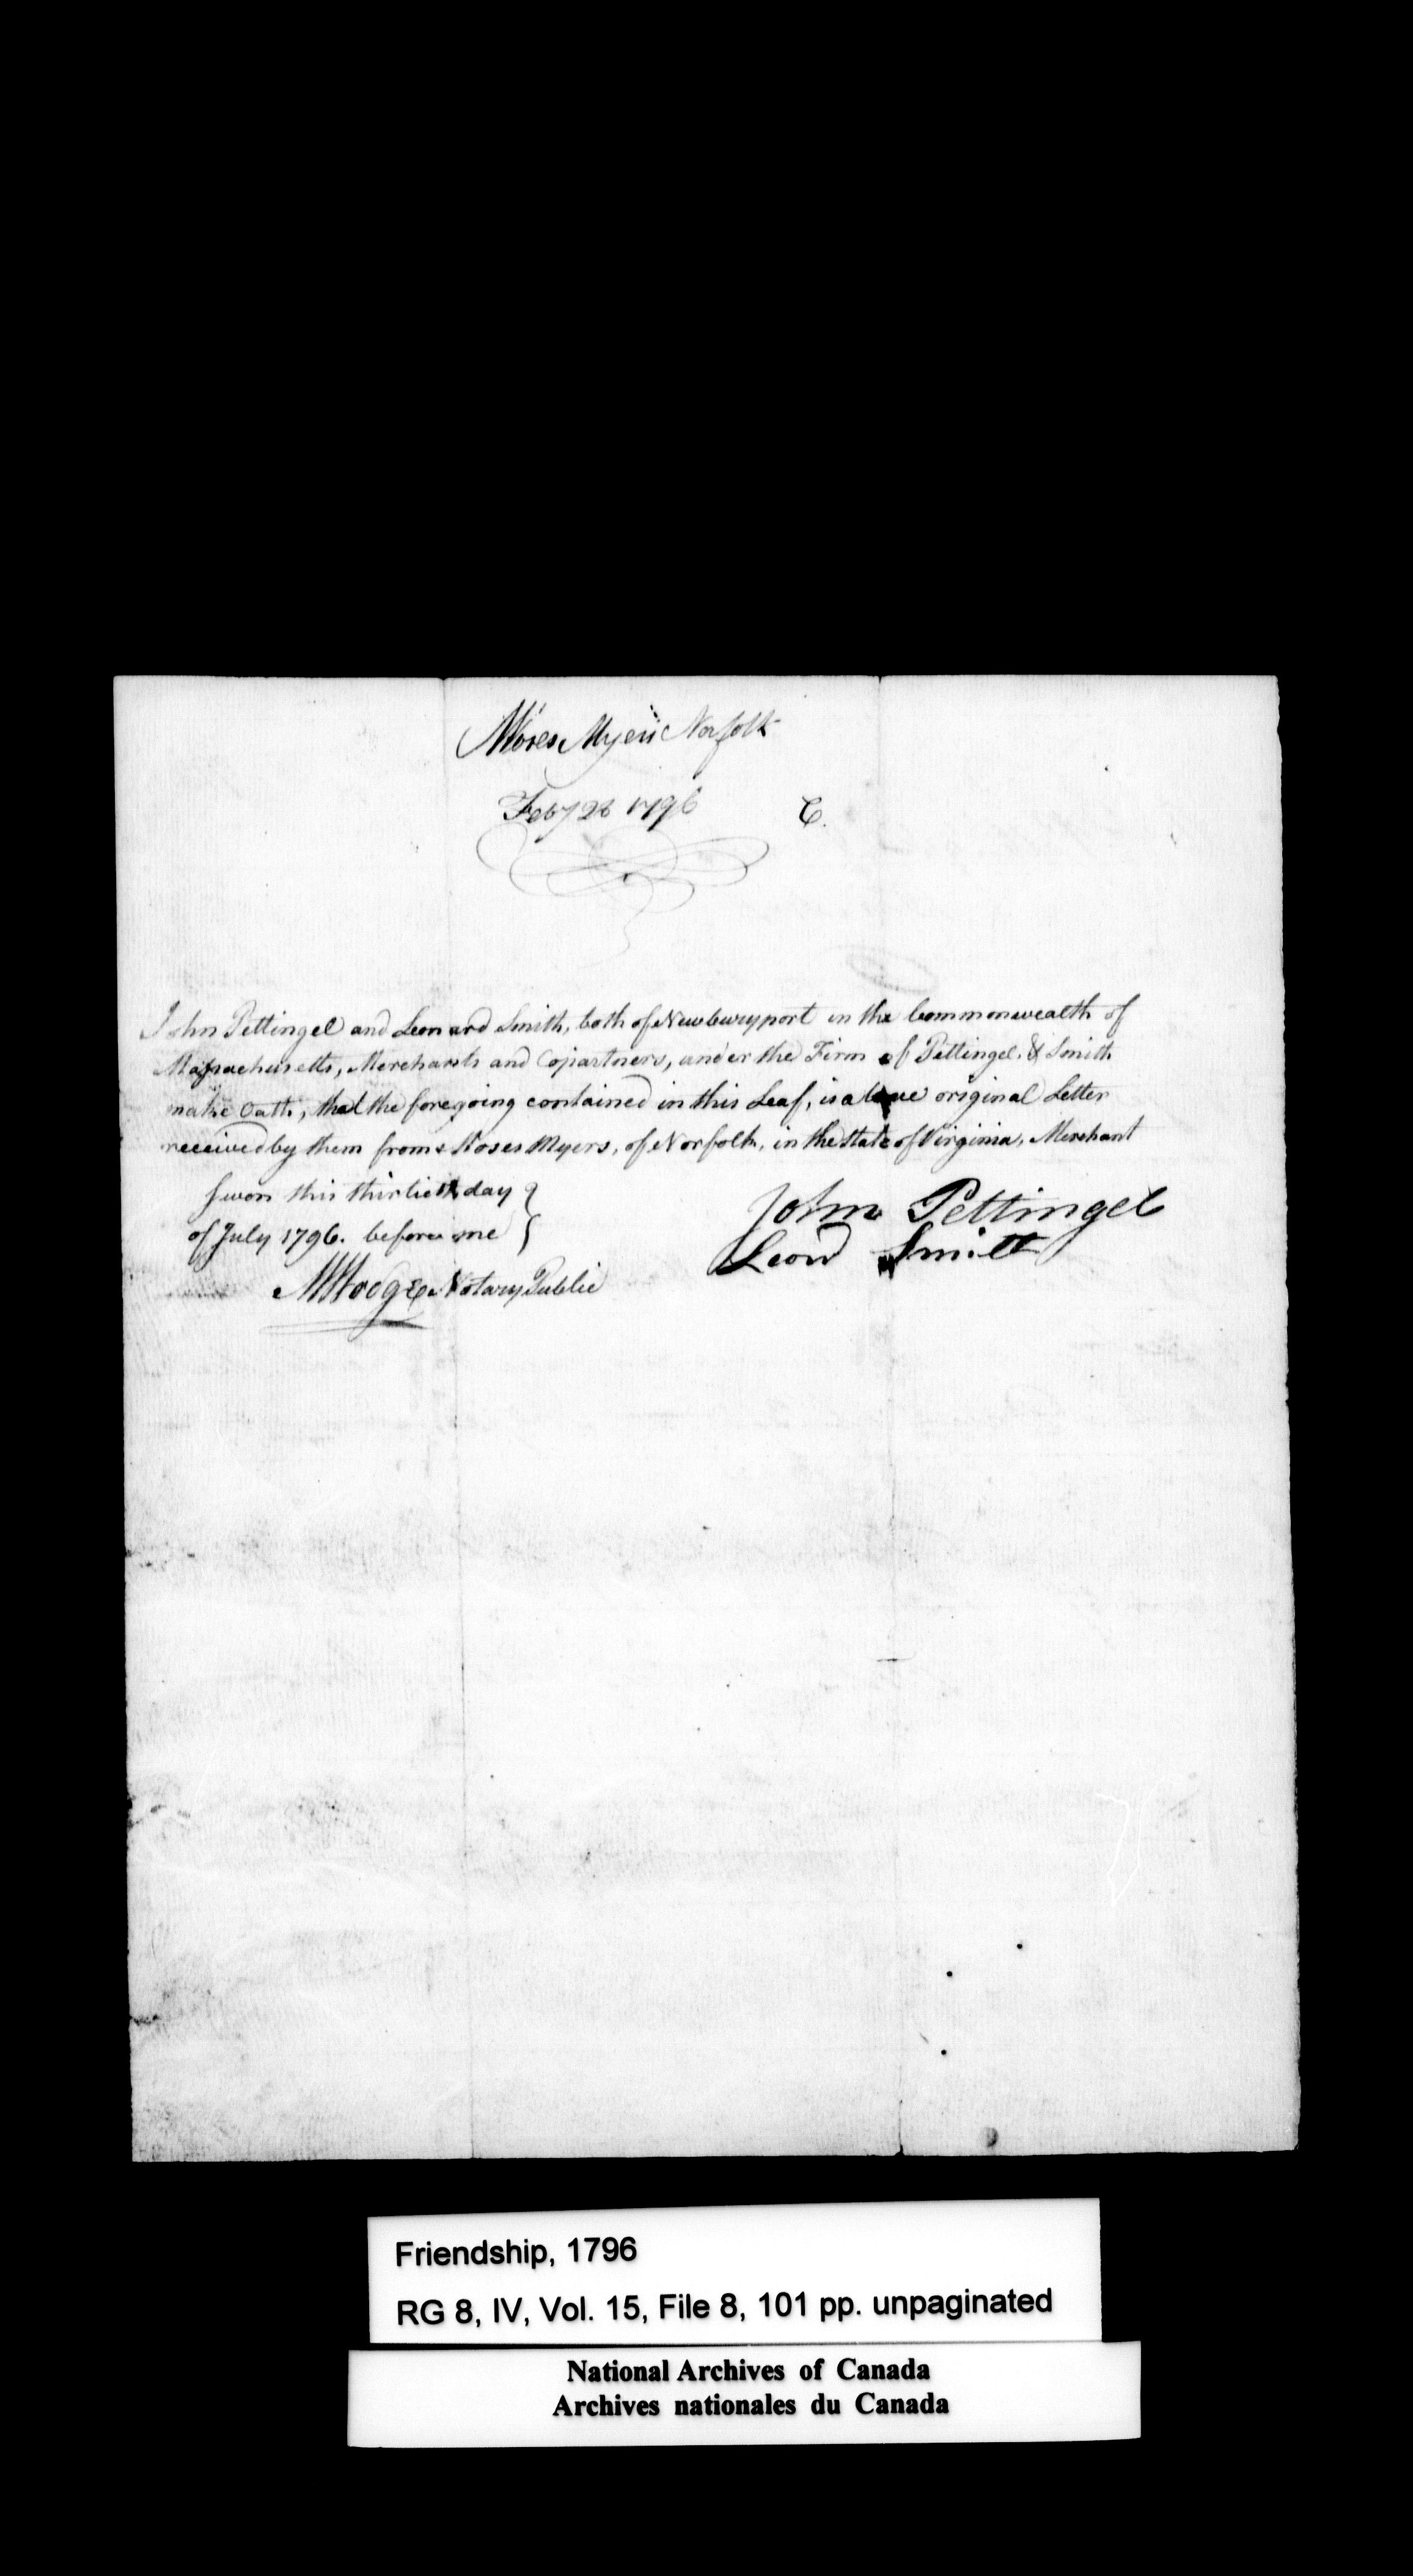 Moses Myers Norfolk
Feby 28 1796
C.
John Pettingel and Leonard Smith, both of Newburyport in the Commonwealth of
Massachusetts, Merchants and Copartners, under the Firm of Pettingel & Smith
make Oath, that the foregoing contained in this Leaf, is a true original Letter
received by them from Moses Myers, of Norfolk, in the State of Virginia, Merchant
Sworn this thirtieth day
of July 1796. before me
John Pettingel
Leod Smith
M Hodge Notary Public
Friendship, 1796
RG 8, IV, Vol. 15, File 8, 101 pp. unpaginated
National Archives of Canada
Archives nationales du Canada